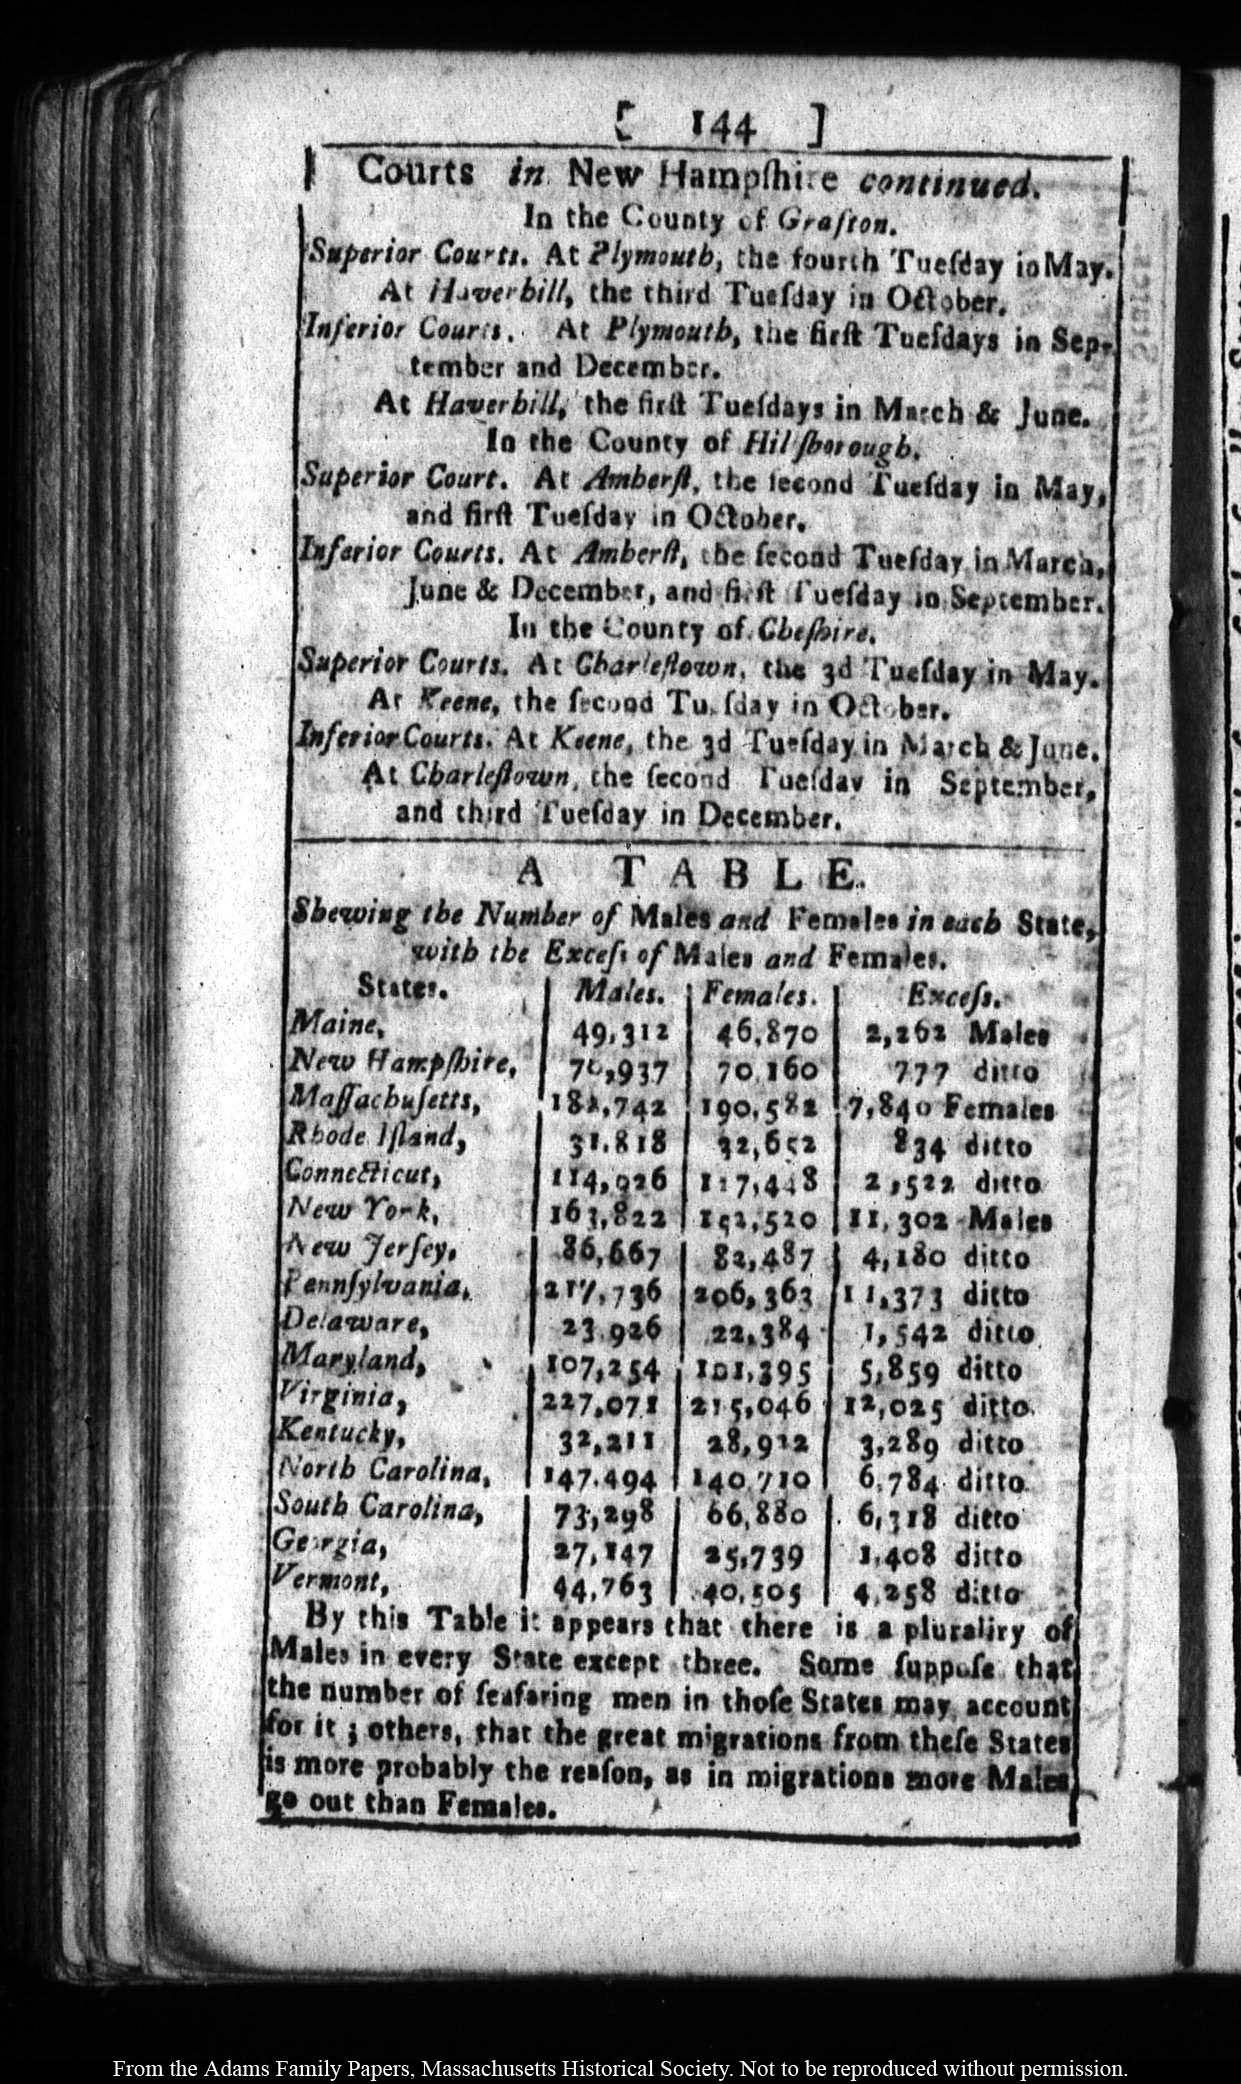 [ 144 ]
Courts in New Hampſhire continued.
In the County of Grafton.
Superior Courts. At Plymouth, the fourth Tueſday in May.
At Haverhill, the third Tueſday in October.
Inferior Courts. At Plymouth, the firſt Tueſdays in Sep-
tember and December.
At Haverhill, the firſt Tueſdays in March & June.
In the County of Hilſborough.
Superior Court. At Amherſt, the ſecond Tueſday in May,
and firſt Tueſday in October.
Inferior Courts. At Amherſt, the ſecond Tueſday in March,
June & December, and firſt Tueſday in September.
In the County of Cheſhire.
Superior Courts. At Charleſtown, the 3d Tueſday in May.
At Keene, the ſecond Tueſday in October.
Inferior Courts. At Keene, the 3d Tueſday in March & June.
At Charleſtown, the ſecond Tueſday in September,
and third Tueſday in December.
A TABLE.
Shewing the Number of Males and Females in each State,
with the Exceſs of Males and Females.
States. Males. Females. Exceſs.
Maine, 49,312 46,870 2,262 Males
New Hampſhire, 70,937 70,160 777 ditto
Maſſachuſetts, 182,742 190,582 7,840 Females
Rhode Iſland, 31,818 32,652 834 ditto
Connecticut, 114,926 117,448 2,522 ditto
New York, 163,822 152,520 11,302 Males
New Jerſey, 86,667 82,487 4,180 ditto
Pennſylvania, 217,736 206,363 11,373 ditto
Delaware, 23.926 22,384 1,542 ditto
Maryland, 107,254 101,395 5,859 ditto
Virginia, 227,071 215,046 12,025 ditto
Kentucky, 32,211 28,922 3,289 ditto
North Carolina, 147.494 140,710 6,784 ditto
South Carolina, 73,298 66,880 6,318 ditto
Georgia, 27,147 25,739 1,408 ditto
Vermont, 44,763 40,505 4,258 ditto
By this Table it appears that there is a plurality of
Males in every State except three. Some ſuppoſe that
the number of ſeafaring men in thoſe States may account
for it ; others, that the great migrations from theſe States
is more probably the reaſon, as in migrations more Males
go out than Females.
From the Adams Family Papers, Massachusetts Historical Society. Not to be reproduced without permission.